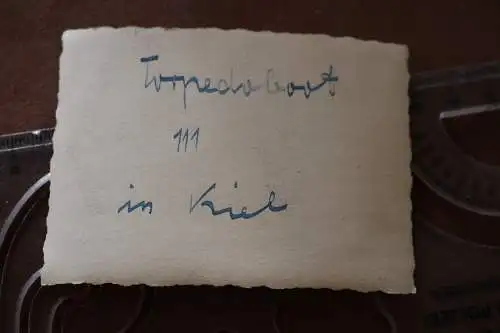 Torpedoboot
111
in Kiel